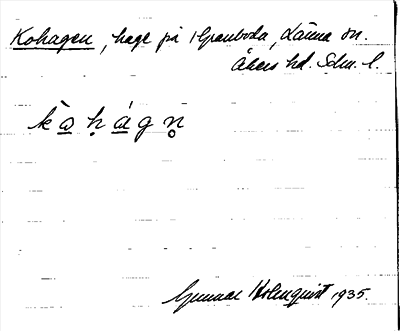 Kohagen, hage på Granboda, Länna sn.
Åkers hd. Sdm. l.
kò̱ḥá̱gn̥
Gunnar Holmquist 1935.